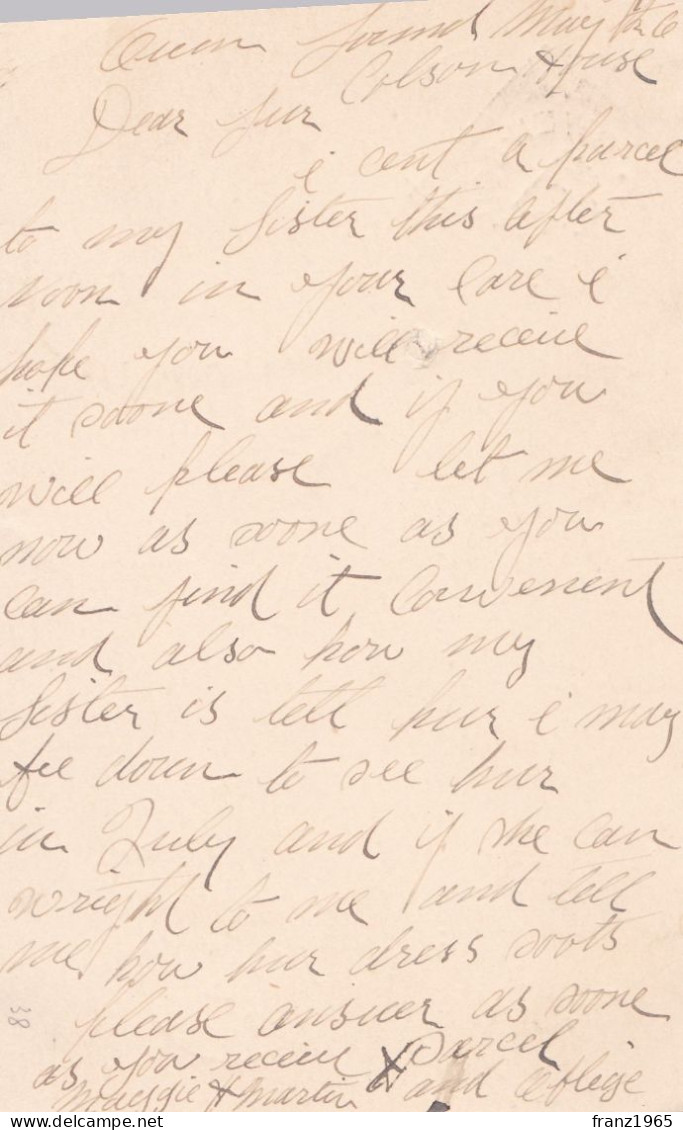 Owen Sound May the 6
Colson House
Dear Sur
i cent a parcel
to my Sister this after
noon in your Care i
hope you will receive
it soone and if you
will please let me
now as soone as you
can find it Convenent
and also how my
Sister is tell hur i may
be down to see hur
in July and if she can
wright to me and tell
me how hur dress soots
please answer as soone
as you receive Parcel
Maggie Martin and oblige
38
franz1965